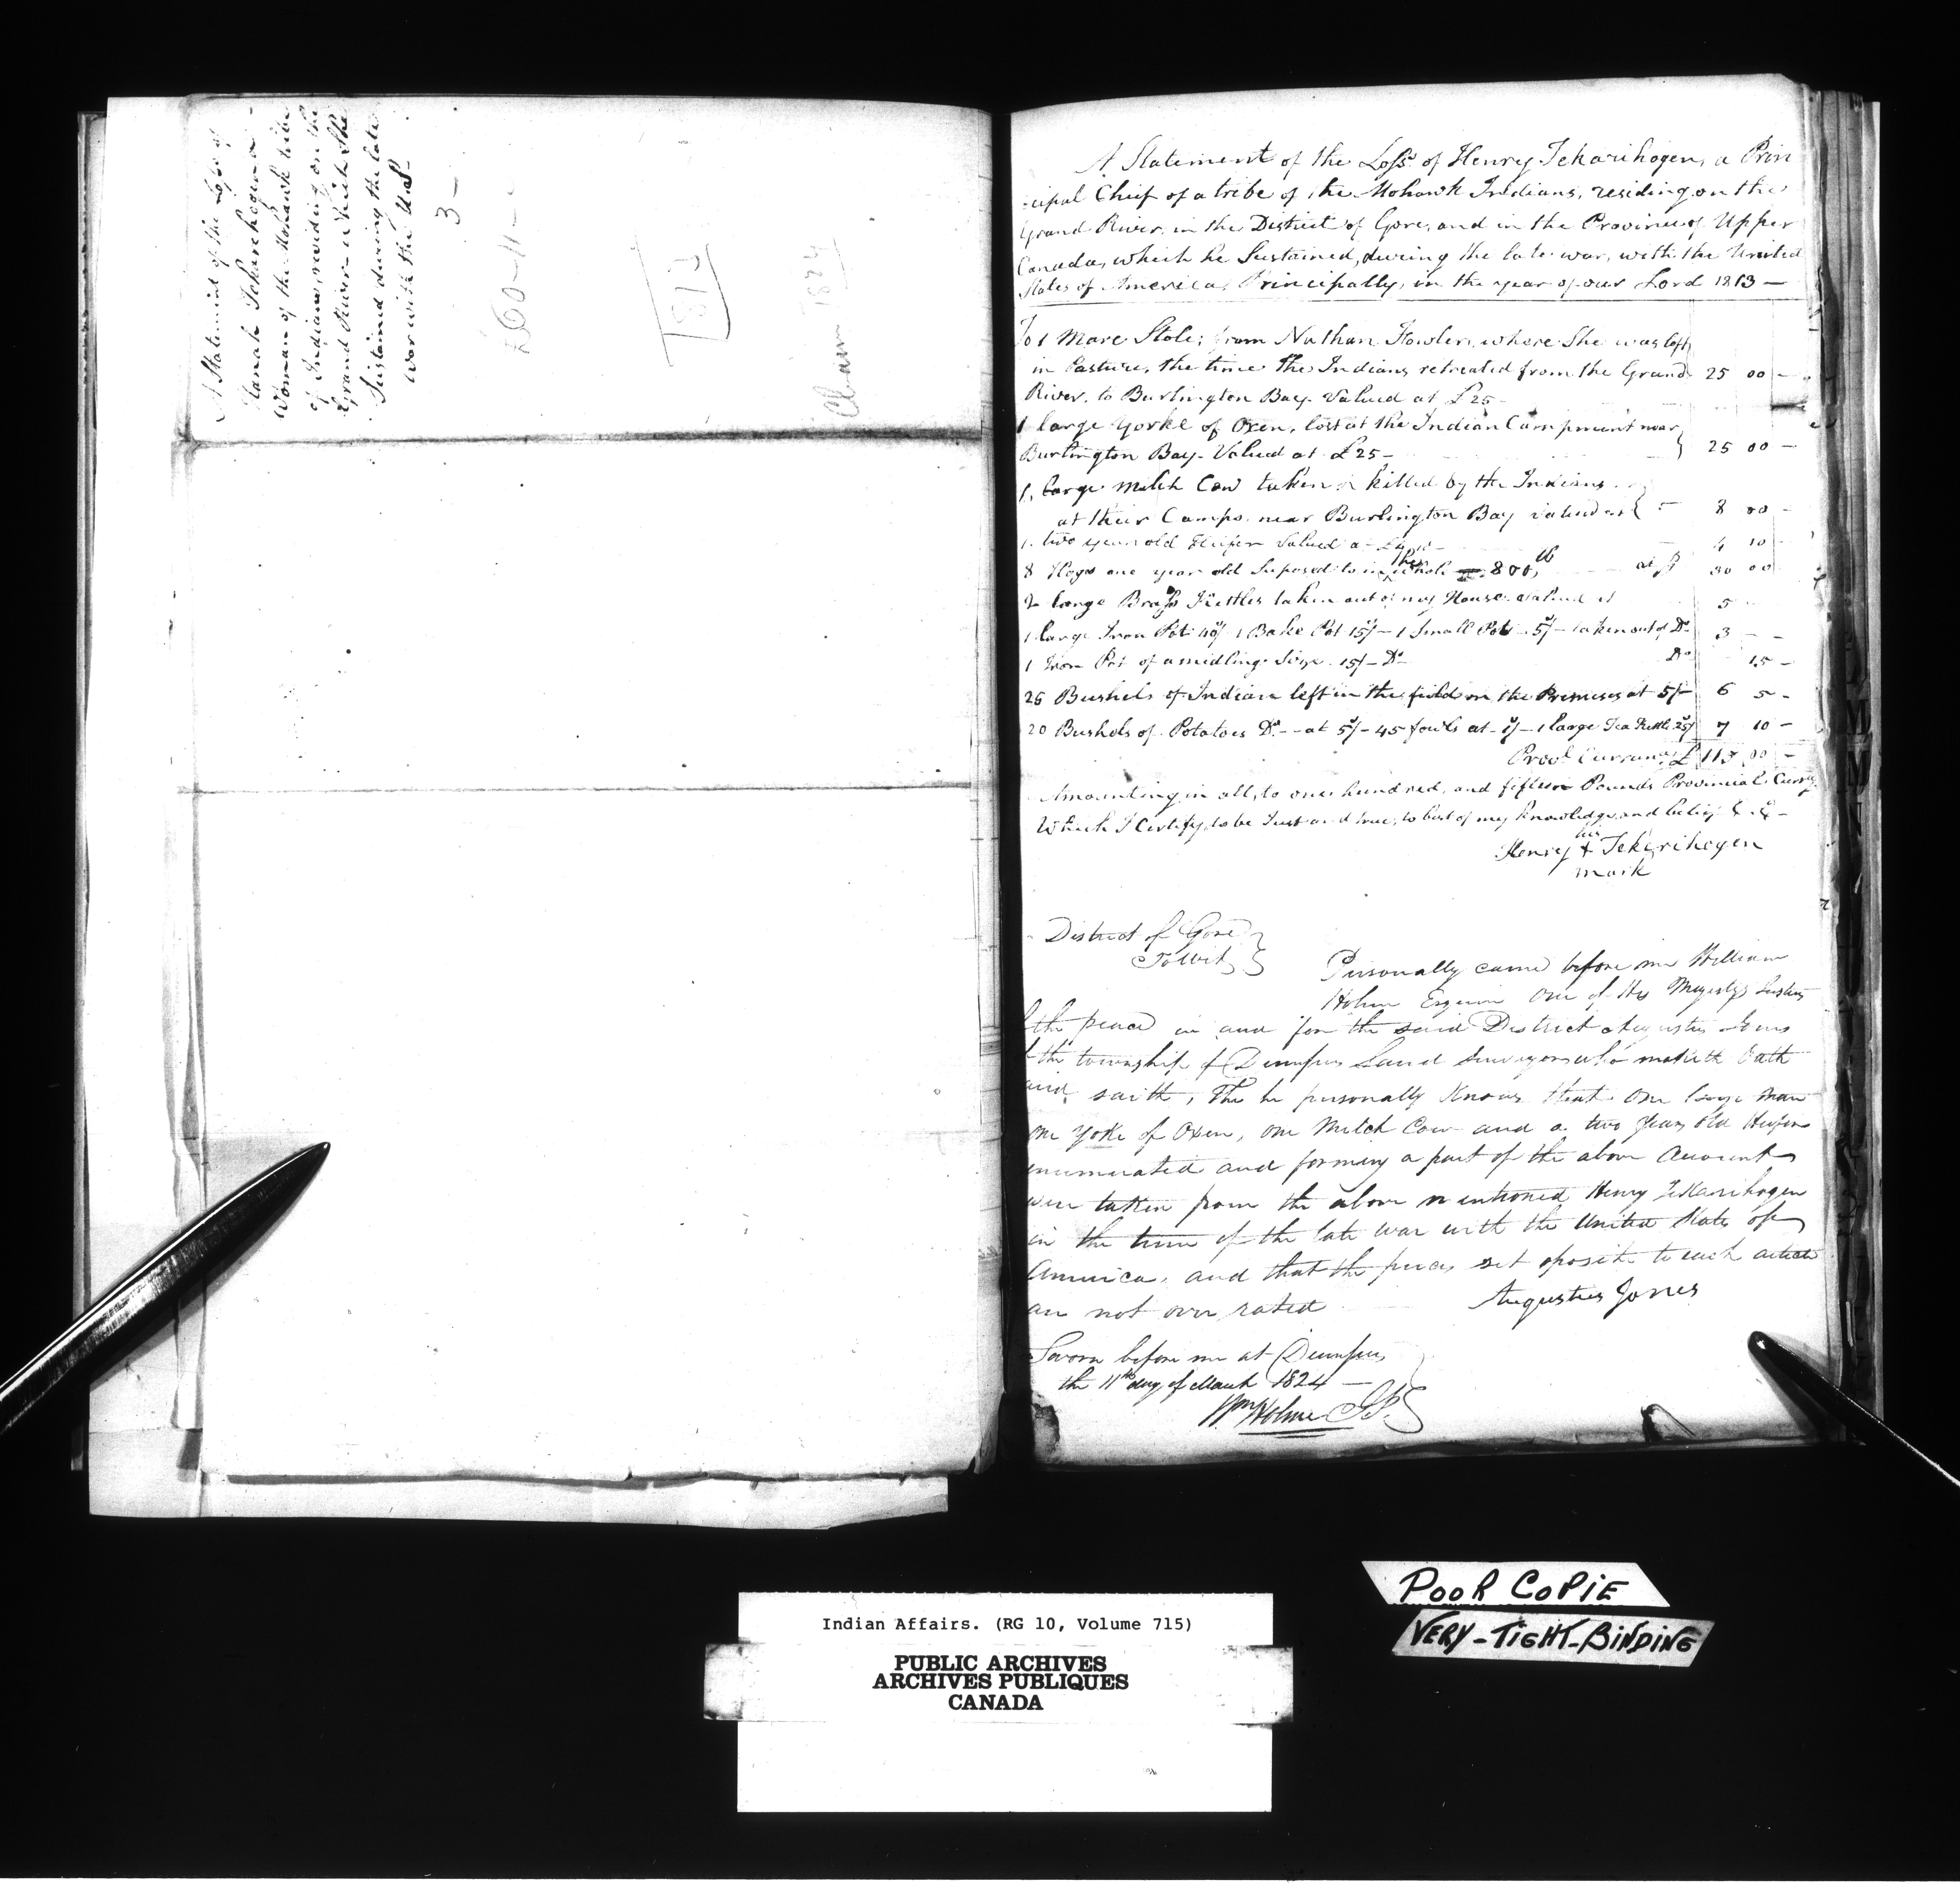 A Statement of the Loss of
Hanah Tekarihogen a
Woman of the Mohawk tribe
of Indians, residing on the
Grand River which She
Sustained during the late
War with the U.S.
3 -
£60-11-
1813
Claim 1824
A Statement of the Losss of Henry Tekarihogen, a Prin
cipal Chief of a tribe of the Mohawk Indians, residing on the
Grand River, in the District of Gore, and in the Province of Upper
Canada, which he Sustained, during the late war, with the United
States of America, Principally, in the year of our Lord 1813 —
To 1 Mare Stole; from Nathan Fowler, where She was left
in Pasture, the time the Indians retreated from the Grand 25 00 -
River, to Burlington Bay. Valued at £25 -
1 large Yorke of Oxen, lost at the Indian Campment near
Burlington Bay - Valued at £25 - 25 00 -
1. large milch Cow taken or killed by the Indians
at their Camps. near Burlington Bay valued at 8 00 -
1. two year old Heifer Valued a - £4,10 - 4 10 -
8 Hogs one year old Suposed to in the whole 800 lb at 30 00
2 large Brass Kettles taken out of my House valued at 5 -
1 large Iron Pot 40/ 1 Bake Pot 15/- 1 Small Pot - 5/- taken out of Do 3 - -
1 Iron Pot of a midling Size. 15/- Do Do 15 -
25 Bushels of Indian left in the field on the Premises at 5/- 6 5 -
20 Bushels of Potatoes Do - - at 5/- 45 fowls at - 1/- 1 large Tea Kettle 25/ 7 10 -
Provl Curran £ 115 00 -
Amounting in all, to one hundred, and fifteen Pounds Provincial Curry
Which I Certify, to be Just and true, to best of my knowledge, and belief &.&-
his
Henry + Tekarihogen
mark
District of Gore
To Wit
Personally came before me William
Holme Esquire One of His Majesty's Justices
the peace in and for the said District Augustus Jones
the township of Dumfries Land Surveyor who maketh Oath
and saith, The he personally Knows that One large Mare
one Yoke of Oxen, one Milch Cow and a two Years Old Heifer
enumerated and forming a part of the above Account
were taken from the above mentioned Henry Tekarihogen
in the time of the late war with the United States of
America, and that the prices set oposite to each article
are not over rated
Augustus Jones
Sworn before me at Dumfries
the 11th day of March 1824 —
Wm Holme J.P.
POOR COPIE
VERY-TIGHT-BINDING
Indian Affairs. (RG 10, Volume 715)
PUBLIC ARCHIVES
ARCHIVES PUBLIQUES
CANADA